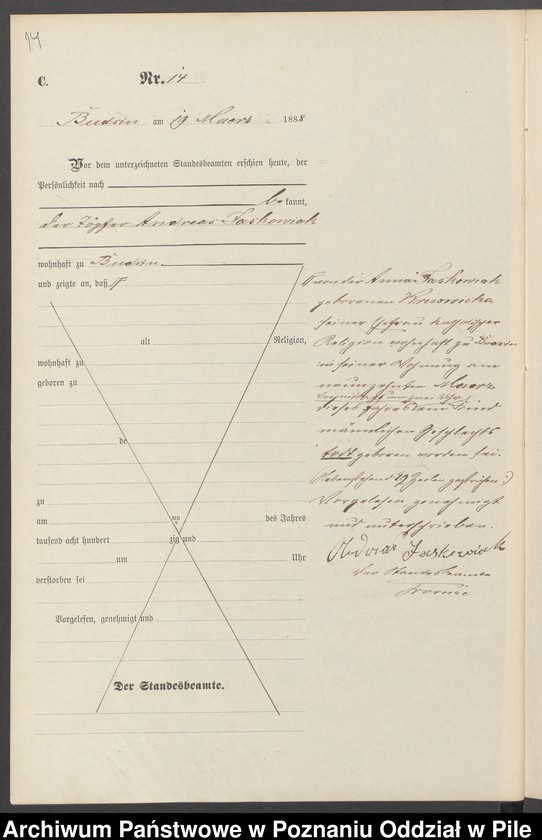 14
C.
Nr. 14
Budsin am 19 Maerz 1888
Vor dem unterzeichneten Standesbeamten erschien heute, der
Persönlichkeit nach
be kannt,
der Töpfer Andreas Jaskowiak
wohnhaft zu Budsin
und zeigte an, daß
von der Anna Jaskowiak
geborenen
seiner Ehefrau katholischer
Religion wohnhaft zu Budsin
in seiner Wohnung am
neunzehnten Maerz
Vormittags um zwei Uhr
dieses Jahres ein Kind
männlichen Geschlechts
todt geboren worden sei.
Nebenstehend 19 Zeilen gestrichen
Vorgelesen, genehmigt
und unterschrieben.
Andreas Jaskowiak
Der Standesbeamte
alt Religion,
wohnhaft zu
geboren zu
de
zu
am ten des Jahres
tausend acht hundert zig und
um Uhr
verstorben sei
Vorgelesen, genehmigt und
Der Standesbeamte.
Archiwum Państwowe w Poznaniu Oddział w Pile